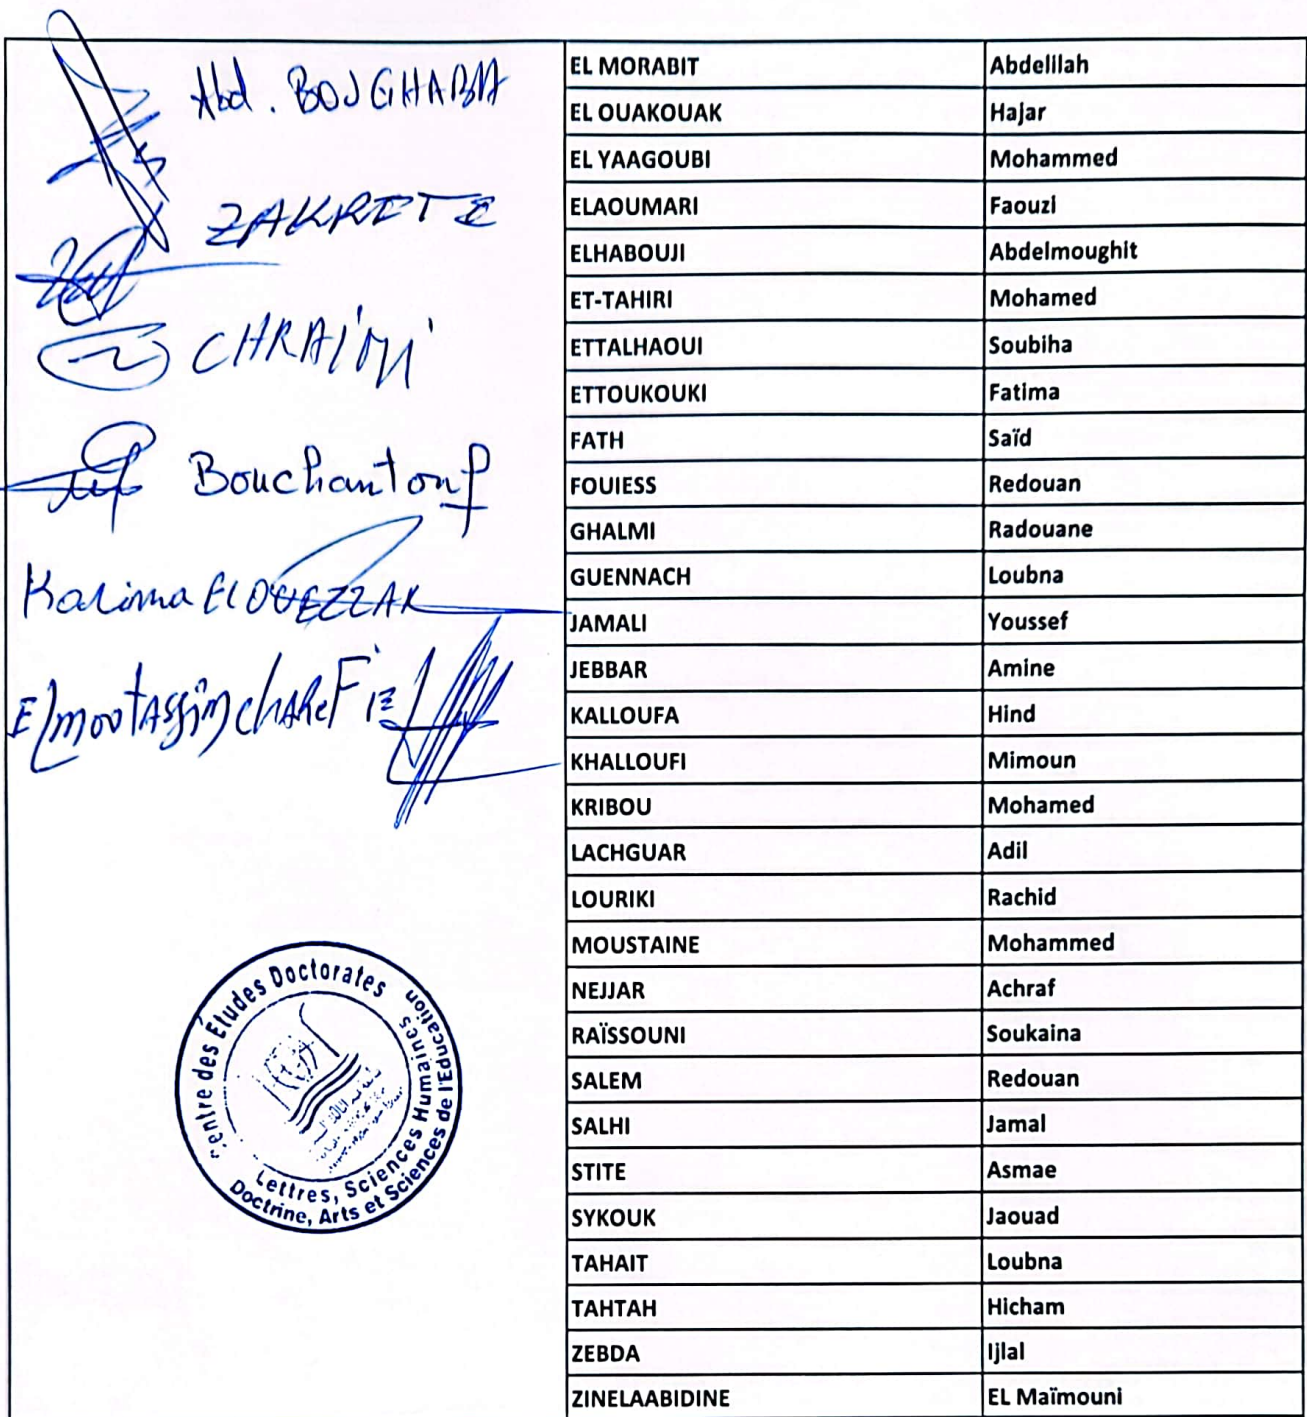 Abd. BOUGHABA
ZAKRETE
CHRAIMI
Bouchantouf
Karima ELOUEZZAK
Centre des Études Doctorates
Lettres, Sciences Humaines
Doctrine, Arts et Sciences de l'Education
EL MORABIT Abdelilah
EL OUAKOUAK Hajar
EL YAAGOUBI Mohammed
ELAOUMARI Faouzi
ELHABOUJI Abdelmoughit
ET-TAHIRI Mohamed
ETTALHAOUI Soubiha
ETTOUKOUKI Fatima
FATH Saïd
FOUIESS Redouan
GHALMI Radouane
GUENNACH Loubna
JAMALI Youssef
JEBBAR Amine
KALLOUFA Hind
KHALLOUFI Mimoun
KRIBOU Mohamed
LACHGUAR Adil
LOURIKI Rachid
MOUSTAINE Mohammed
NEJJAR Achraf
RAÏSSOUNI Soukaina
SALEM Redouan
SALHI Jamal
STITE Asmae
SYKOUK Jaouad
TAHAIT Loubna
TAHTAH Hicham
ZEBDA Ijlal
ZINELAABIDINE EL Maïmouni